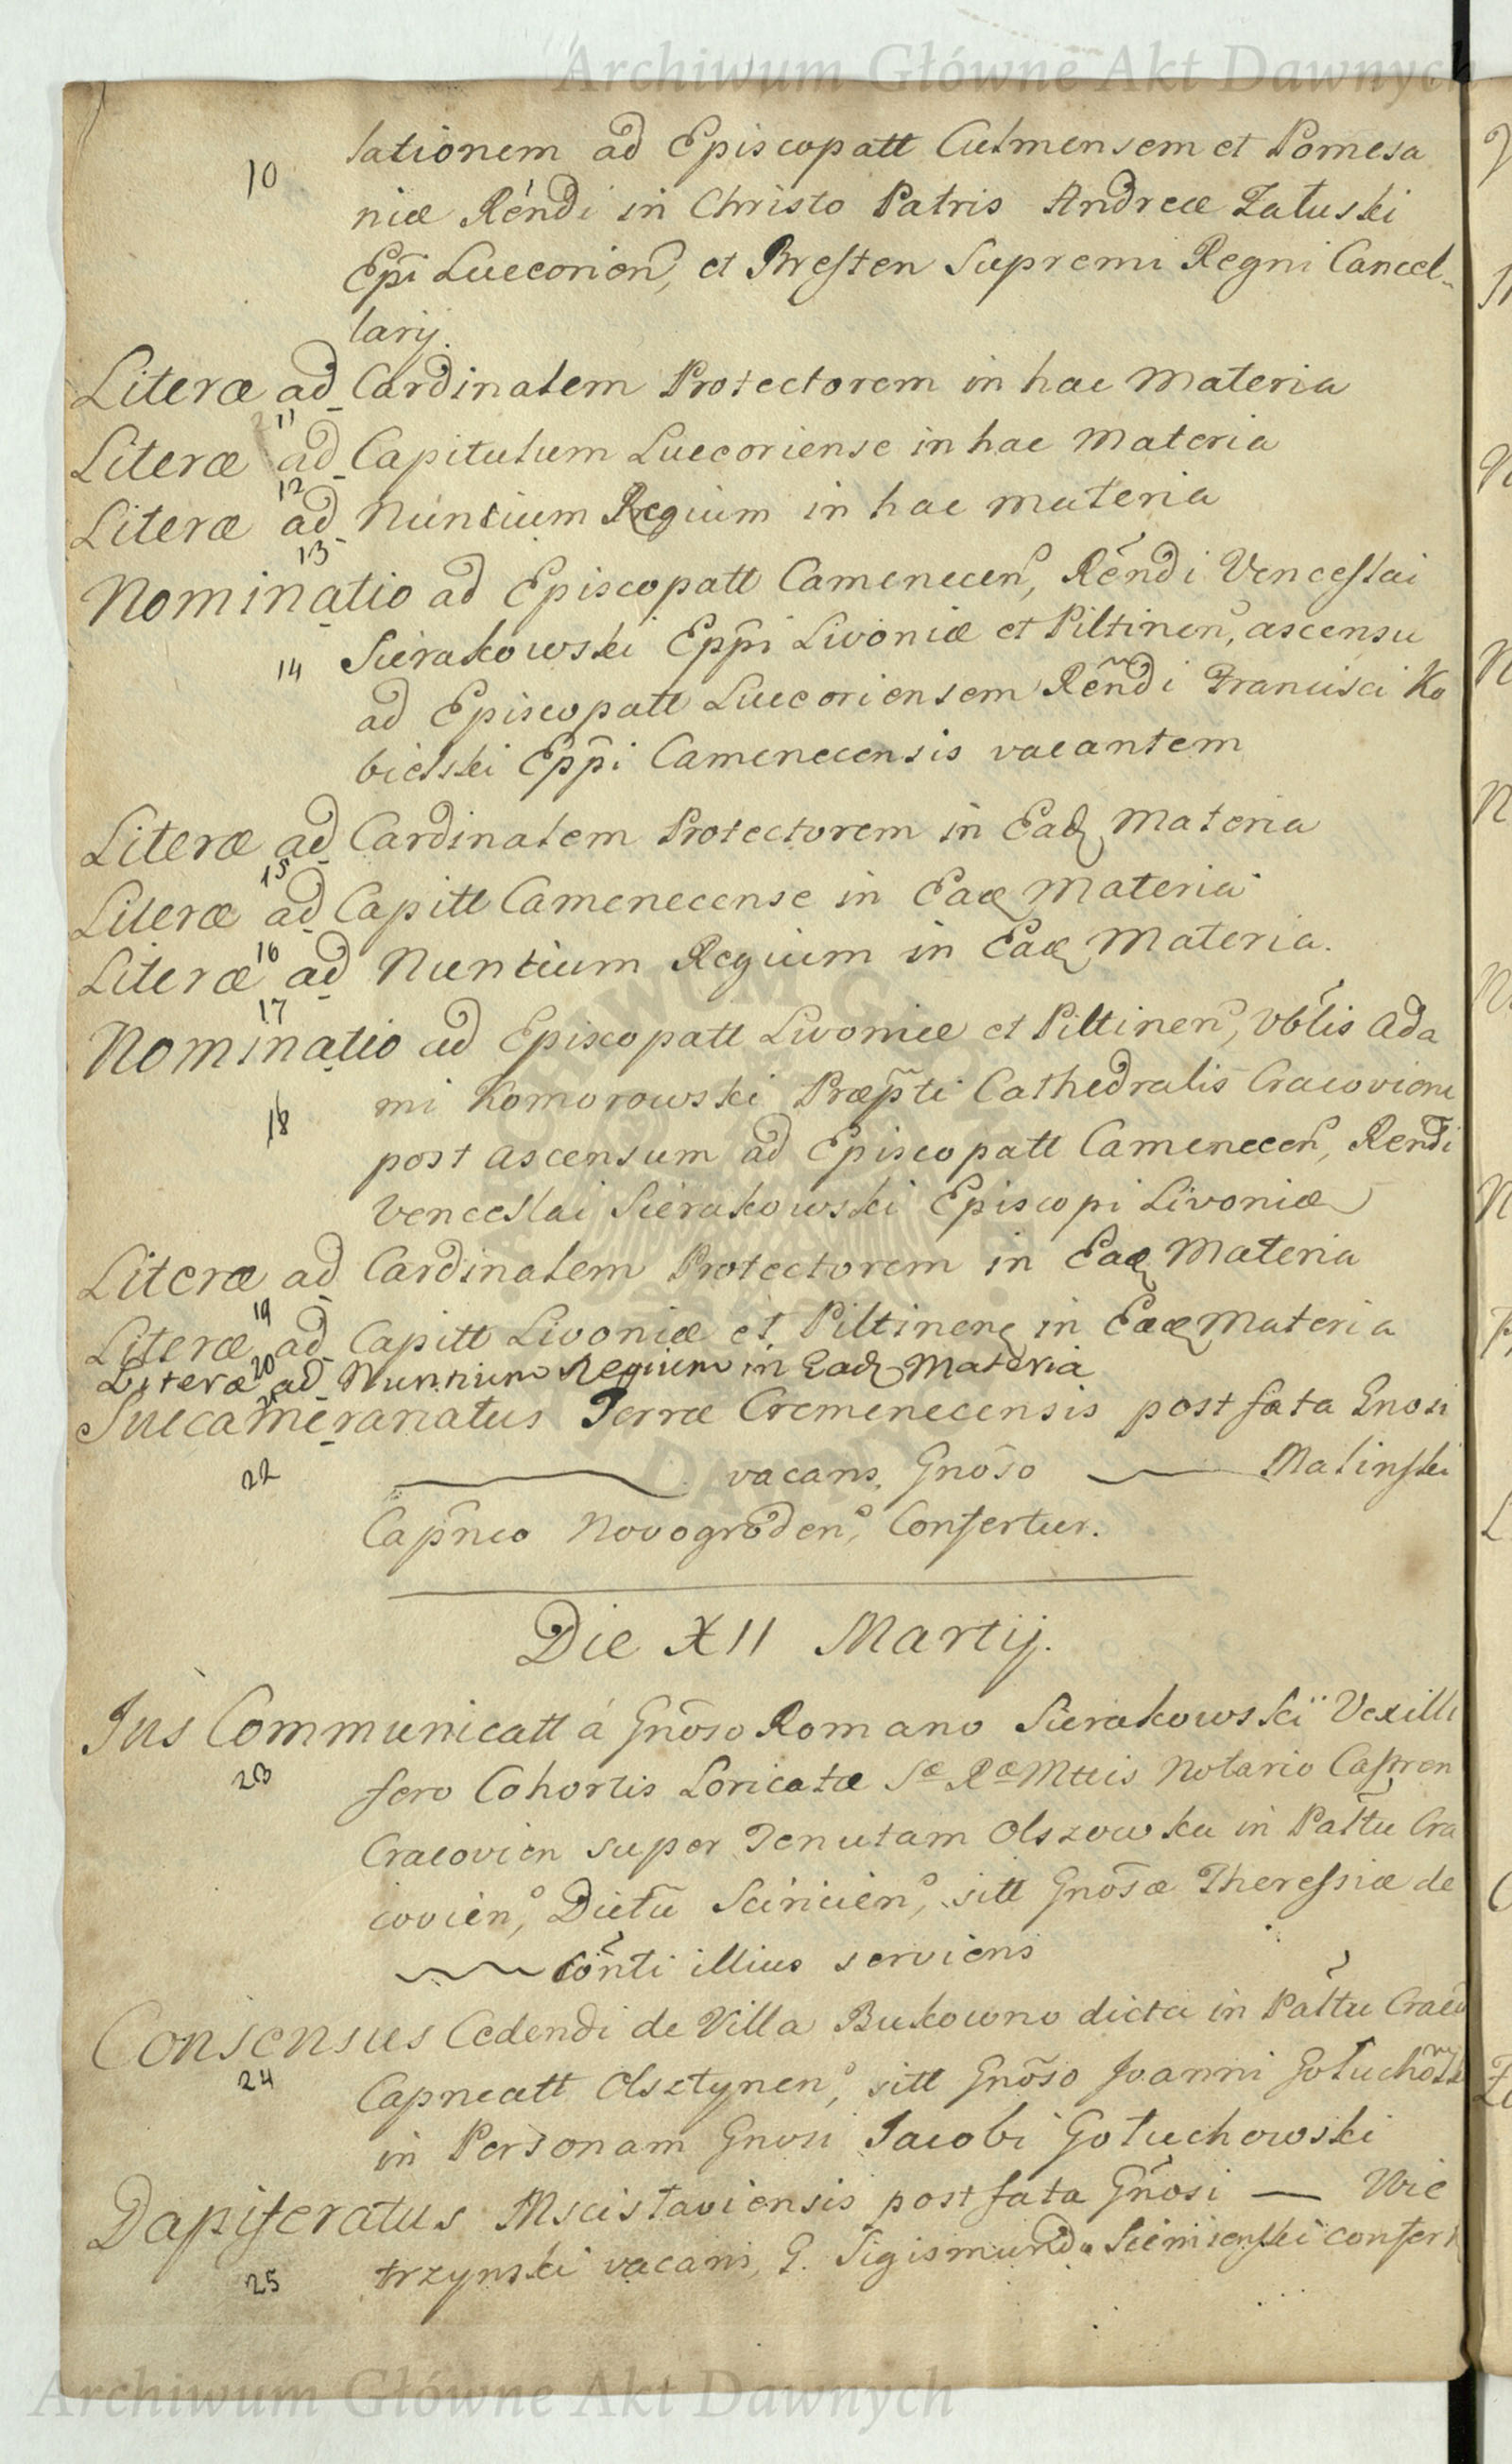 Archiwum Główne Akt Dawnych
lationem ad Episcopatt Culmensem et Pomesa
10
niæ Rẽndi in Christo Patris Andreæ Załuski
Ep̃i Luccorien, et Bresten Supremi Regni Cancel-
larij.
Literæ ad Cardinalem Protectorem in hac Materia
11
Literæ ad Capitulum Luccoriense in hac Materia
12
Literæ ad Nuntium Regium in hac materia
13
Nominatio ad Episcopatt Camenecen, Rẽndi Venceslai
14 Sierakowski Epp̃i Livoniæ et Piltinen, ascensu
ad Episcopatt Luccoriensem Rẽndi Francisci Ko
bielski Epp̃i Camenecensis vacantem
Literæ ad Cardinalem Protectorem in Eadq Materia
15
Literæ ad Capitt Camenecense in Eadq Materia
16
Literæ ad Nuntium Regium in Eadq Materia.
17
Nominatio ad Episcopatt Livoniæ et Piltinen, Vblis Ada
18 mi Komorowski Præp̃ti Cathedralis Cracovien
post ascensum ad Episcopatt Camenecen, Rendi
Venceslai Sierakowski Episcopi Livoniæ
Literæ ad Cardinalem Protectorem in Eadq Materia
19
Literæ ad Capitt Livoniæ et Piltinen in Eadq Materia
20
Literæ ad Nuntium Regium in Eadq Materia
21
Succameranatus Terræ Cremenecensis post fata Gnosi
22 vacans, Gnõso Malinski
Cap̃neo Novogroden, Confertur.
Die XII Martij.
Jus Communicatt á Gnõso Romano Sierakowski Vexilli
23 fero Cohortis Loricatæ Sæ Ræ Mttis Notario Castren
Cracovien super Tenutam Olszowka in Pałtu Cra
covien, sitt Gnõsæ Theressiæ de
Cõnti illius serviens
Consensus Cedendi de Villa Bukowno dicta in Pałtu Craco
24 Capneatt Olsztynen, sitt Gnõso Joanni Gołuchows
in Personam Gnosi Jacobi Gołuchowski
Dapiferatus Mscislaviensis post fata Gñosi — Wie
25 trzynski vacans, G. Sigismundo confert
Archiwum Główne Akt Dawnych